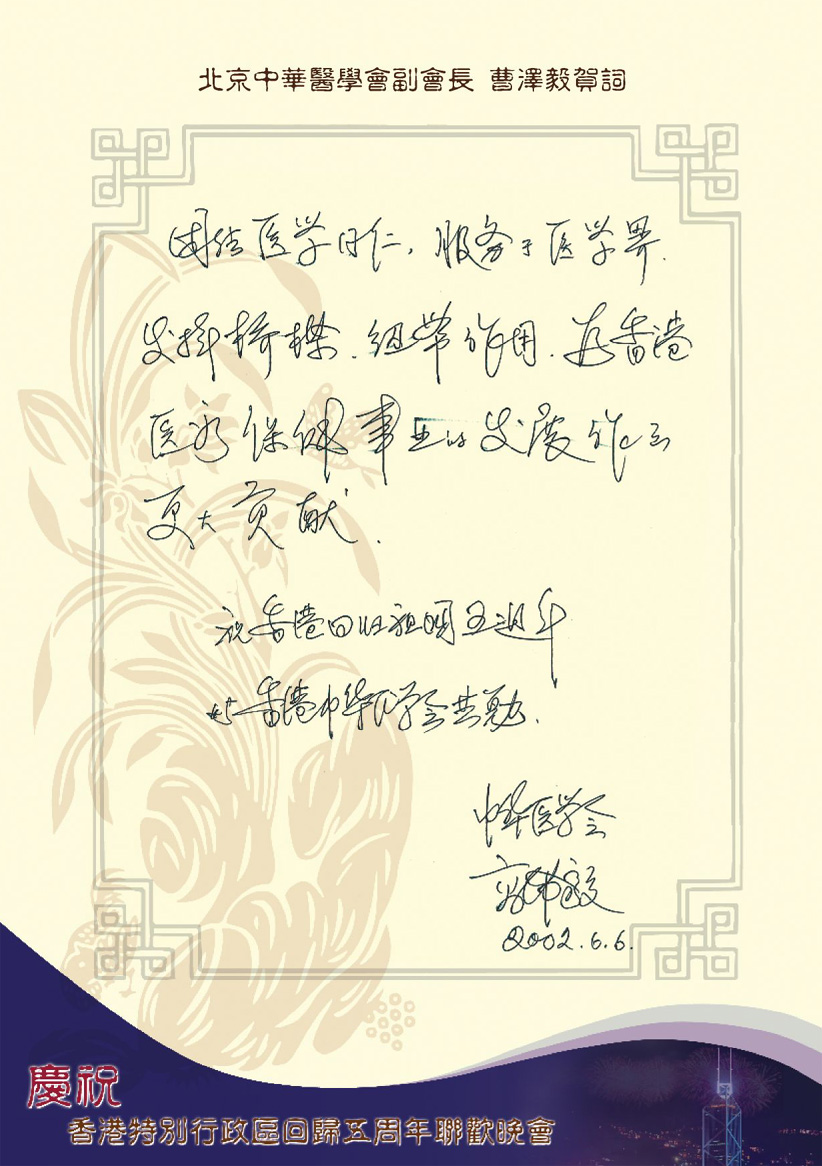 北京中華醫學會副會長 曹澤毅賀詞
团结医学同仁，服务于医学界.
发挥桥梁.纽带作用.为香港
医疗保健事业的发展作出
更大贡献.
祝香港回归祖国五週年
与香港中华医学会共勉.
中华医学会
曹泽毅
2002.6.6.
慶祝
香港特別行政區回歸五周年聯歡晚會